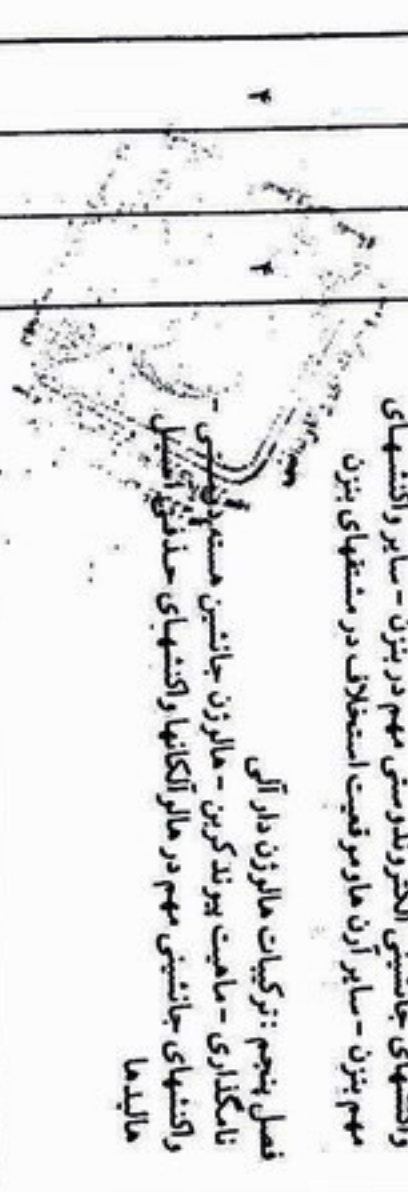 واکنشهای جانشینی الکتروندوستی مهم در بنزن - سایر واکنشهای
مهم بنزن - سایر آرن ها و موقعیت استخلاف در مشتقهای بنزن
۲
فصل پنجم : ترکیبات هالوژن دار آلی
نامگذاری - ماهیت پیوند کربن - هالوژن جانشین هسته دوستی -
واکنشهای جانشینی مهم در هالوآلکانها واکنشهای حذفی
هالیدها
۲